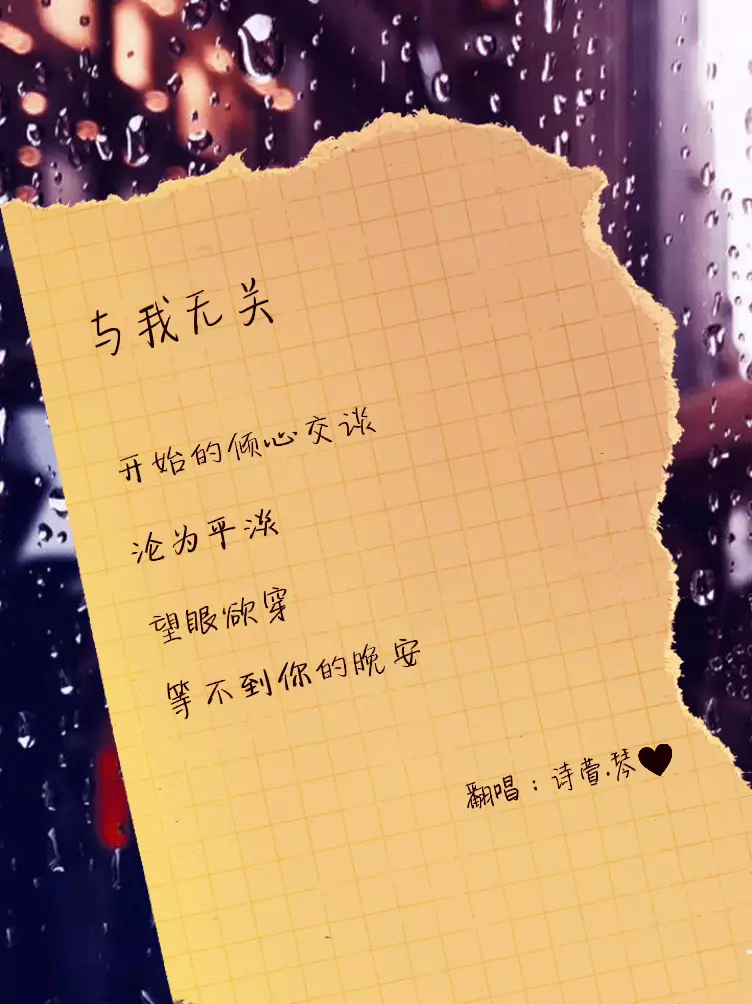 与我无关
开始的倾心交谈
沦为平淡
望眼欲穿
等不到你的晚安
翻唱：诗萱.琴🖤